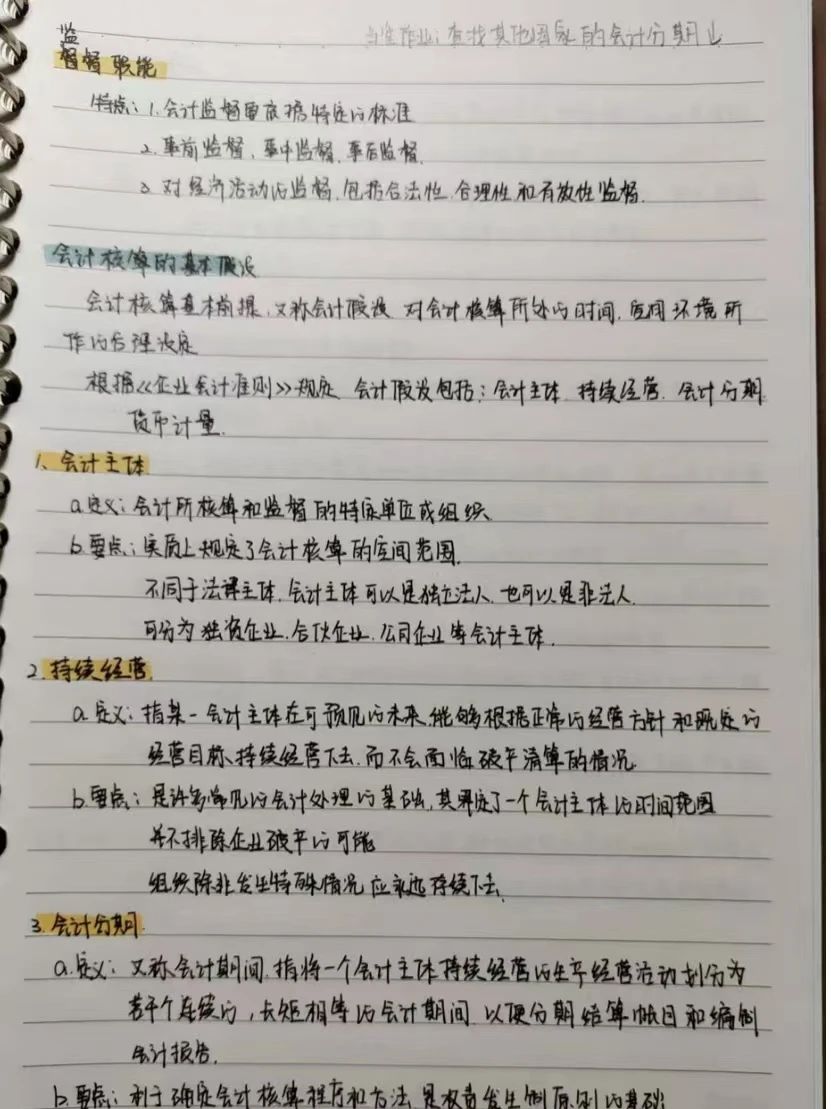 当堂作业：查找其他国家的会计分期
监
督督职能
特点：1.会计监督要依据特定的标准
2.事前监督、事中监督、事后监督.
3.对经济活动的监督,包括合法性.合理性和有效性监督.
会计核算的基本假设
会计核算基本前提,又称会计假设 对会计核算所处的时间.空间环境所
作的合理设定
根据《企业会计准则》规定 会计假设包括：会计主体 持续经营. 会计分期
货币计量.
1、会计主体
a.定义：会计所核算和监督的特定单位或组织
b.要点：实质上规定了会计核算的空间范围.
不同于法律主体.会计主体可以是独立法人.也可以是非法人.
可分为独资企业.合伙企业.公司企业等会计主体.
2.持续经营.
a.定义：指某一会计主体在可预见的未来,能够根据正常的经营方针和既定的
经营目标、持续经营下去,而不会面临破产清算的情况.
b.要点：是许多常见的会计处理的基础,其界定了一个会计主体的时间范围
并不排除企业破产的可能
组织除非发生特殊情况应永远存续下去.
3.会计分期.
a.定义：又称会计期间.指将一个会计主体持续经营的生产经营活动划分为
若干个连续的,长短相等的会计期间.以便分期结算账目和编制
会计报告.
b.要点：利于确定会计核算程序和方法,是权责发生制原则的基础;